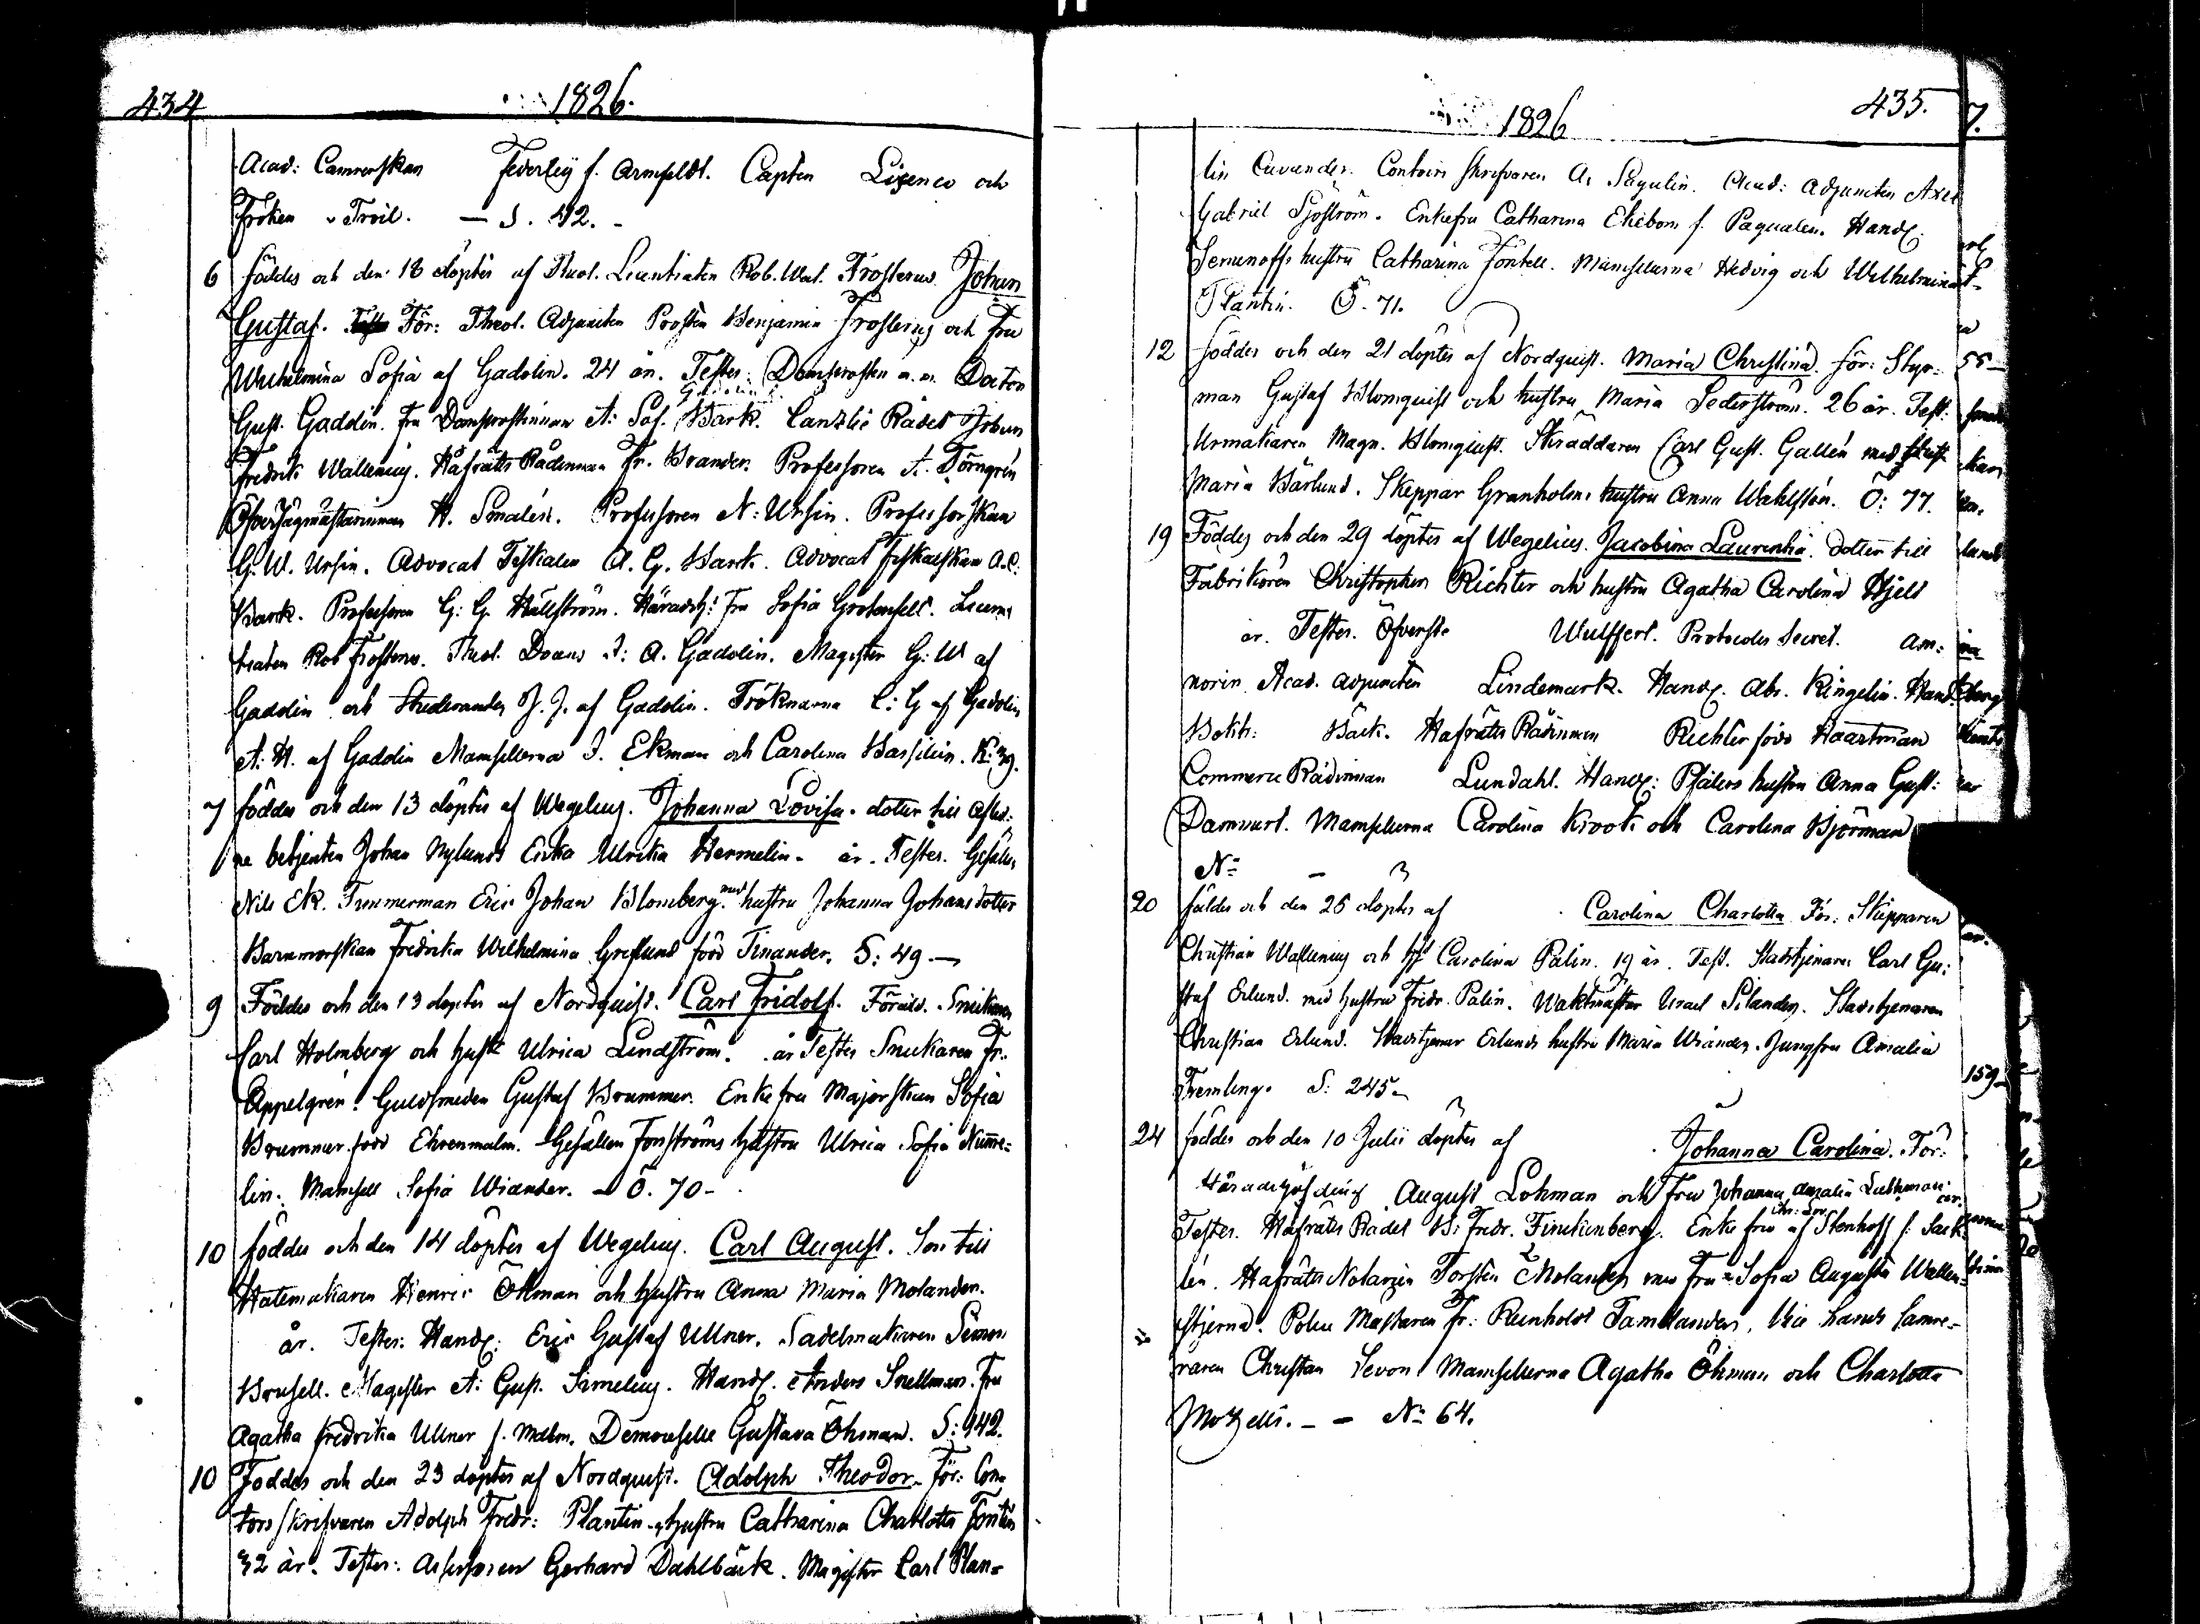 434
1826.
Acad: Camrerskan Federley f. Armfeldt. Capten och
Fröken v Troil. — S. 42. -
6 föddes och den 18 döptes af Theol. Licentiaten Rob. Val. Frosterus. Johan
Gustaf. För: Theol. Adjuncten Prosten Benjamin Frosterus och Fru
Wilhelmina Sofia af Gadolin. 24 år. Testes. Domprosten m.m. Doctor
Gust. Gadolin. Fru Domprostinnan A: Sof. Bark. Canzlie Rådet Johan
Gadolin
Fredrik Wallenius. Håfrätts Rådinnan Fr. Brander. Professoren A. Törngren
Öfverjägmästarinnan H. Smalén. Professoren N: Ursin. Professorskan
G. W. Ursin. Advocat Fiskalen A. G. Bark. Advocat Fiskalskan A. C.
Bark. Professoren G: G. Hällström. Häradsh: Fru Sofia Grotenfelt. Licen-
tiaten Rob Frosterus. Theol. Docens J: A. Gadolin. Magister G: W af
Gadolin och Studeranden J. J. af Gadolin. Fröknarna C: G af Gadolin
A: H. af Gadolin Mamsellerna J. Ekman och Carolina Bassilier. K: 39.
7 föddes och den 13 döptes af Wegelius. Johanna Lovisa. dotter till afled:
ne betjenten Johan Nylunds Enka Ulrika Hermelin. år. Testes. Gesällen
Nils Ek. Timmerman Eric Johan Blomberg med hustru Johanna Johansdotter
Barnmorskan Fredrika Wilhelmina Greflund född Finander. S: 49 —
9 Föddes och den 13 döptes af Nordquist. Carl Fridolf. Föräld. Snickaren
Carl Holmberg och hust: Ulrica Lindström. år Testes Snickaren Fr.
Appelgren. Guldsmeden Gustaf Brummer. Enkefru Majorskan Sofia
Brummer född Ehrenmalm. Gesällen Forsströms hustru Ulrica Sofia Numme-
lin. Mamsell Sofia Wiander. — Ö. 70 -
10 föddes och den 14 döptes af Wegelius. Carl August. Son till
Hattmakaren Henric Öhman och hustru Anna Maria Molander.
år. Testes: Handl: Eric Gustaf Ullner. Sadelmakaren Simon
Brusell. Magister A: Gust. Simelius. Handl. Anders Snellman. Fru
Agatha Fredrika Ullner f. Malm. Demoiselle Gustava Öhman. S: 942.
10 Föddes och den 23 döptes af Nordquist. Adolph Theodor. För: Con-
torsskrifvaren Adolph Fredr: Plantin, hustru Catharina Charlotta Fontell
32 år. Testes: Assessoren Gerhard Dahlbäck. Magister Carl Plan-
1826
435.
7.
tin Cavander. Contoirs skrifvaren A, Sagulin. Acad: Adjuncten Axel
Gabriel Sjöström. Enkefru Catharina Ekebom f. Paqualen. Handl.
Semenoffs hustru Catharina Fontell. Mamsellerna Hedvig och Wilhelmina
Plantin. Ö. 71.
12 föddes och den 21 döptes af Nordquist. Maria Christina. för: Styr-
man Gustaf Blomquist och hustru Maria Sederström. 26 år. Test:
Urmakaren Magn. Blomquist. Skräddaren Carl Gust. Gallén med hust
Maria Bärlund. Skeppar Granholms hustru Anna Wahlstén. Ö: 77.
19 Föddes och den 29 döptes af Wegelius. Jacobina Laurentia. dotter till
Fabrikören Christopher Richter och hustru Agatha Carolina Hjelt
år. Testes. Öfverste Wulffert. Protocolls Secret. Am:
norin Acad. adjuncten Lindemark. Handl. Abr. Kingelin. Hand.
Bokh: Bäck. Hafrätts Rådinnan Richter född Haartman
Commerce Rådinnan Lundahl. Handl: Pfalers hustru Anna Gust:
Damvert. Mamsellerna Carolina Krook och Carolina Björman
N:
20 föddes och den 26 döptes af Carolina Charlotta. För: Skepparen
Christian Wallenius och H: Carolina Palin. 19 år. Test. Stadstjenaren Carl Gu:
staf Erlund. med hustru Fridr. Palin. Waktmäster Israel Silander. Stadstjenaren
Christian Erlund. Stadstjenar Erlunds hustru Maria Wiander. Jungfru Amalia
Fremling. S: 245 -
24 föddes och den 10 Julii döptes af Johanna Carolina. För:
Häradshöfding August Lohman och Fru Johanna Amalia Lithman
Testes. Hafrätts Rådet B: Fredr. Finckenberg. Enke fru af Stenhoff f. Sack-
lén. Hafrätts Notarien Torsten Molander med Fru Sofia Augusta Wallen-
stjerna. Police Mästaren Fr. Reinhold Tamelander. Vice Lands Camre-
raren Christian Sevon Mamsellerna Agatha Öhman och Charlotta
Mozelli. — — N: 64.
55 —
159 -